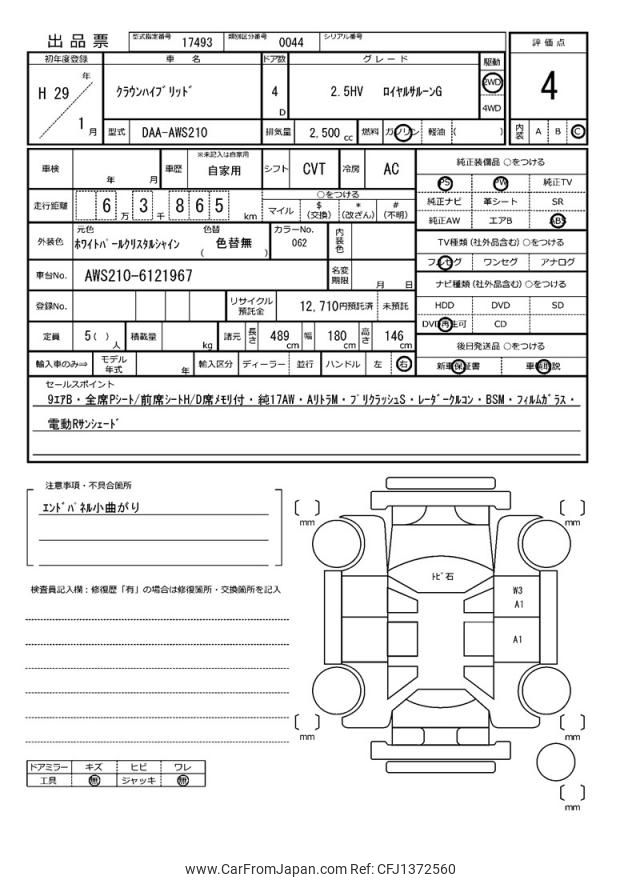 出品票 型式指定番号 17493 類別区分番号 0044 シリアル番号
評価点
4
内装 A B C
初年度登録 車名 ドア数 グレード 駆動
H 29 年 1 月
クラウンハイブリッド 4 D 2.5HV ロイヤルサルーンG 2WD
4WD
型式 DAA-AWS210 排気量 2,500 cc 燃料 ガソリン 軽油 ( )
車検 年 月 車歴 ※未記入は自家用 自家用 シフト CVT 冷房 AC
走行距離 6 万 3 千 8 6 5 km
○をつける
マイル $(交換) *(改ざん) #(不明)
外装色 元色 ホワイトパールクリスタルシャイン 色替 ( 色替無 ) カラーNo. 062 内装色
車台No. AWS210-6121967 名変期限 月 日
登録No. リサイクル預託金 12,710円預託済 未預託
定員 5 ( ) 人 積載量 kg 諸元 長さ 489 cm 幅 180 cm 高さ 146 cm
輸入車のみ⇒ モデル年式 年 輸入区分 ディーラー 並行 ハンドル 左 右
純正装備品 ○をつける
PS PW 純正TV
純正ナビ 革シート SR
純正AW エアB ABS
TV種類 (社外品含む) ○をつける
フルセグ ワンセグ アナログ
ナビ種類 (社外品含む) ○をつける
HDD DVD SD
DVD再生可 CD
後日発送品 ○をつける
新車保証書 車輌取説
セールスポイント
9エアB・全席Pシート/前席シートH/D席メモリ付・純17AW・AリトラM・プリクラッシュS・レーダークルコン・BSM・フィルムガラス・
電動Rサンシェード
注意事項・不具合箇所
エンドパネル小曲がり
検査員記入欄:修復歴「有」の場合は修復箇所・交換箇所を記入
ドアミラー キズ ヒビ ワレ
工具 無 ジャッキ 無
mm
mm
トビ石
W3
A1
A1
mm
mm
mm
www.CarFromJapan.com Ref: CFJ1372560